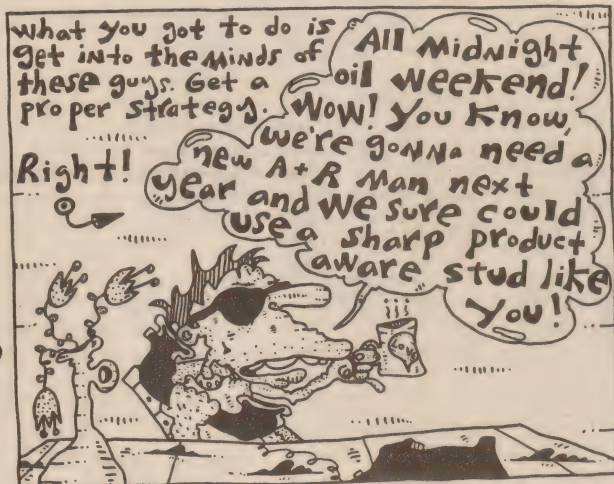 What you got to do is
get into the minds of
these guys. Get a
proper strategy.
Right!
All Midnight
oil weekend!
Wow! You know,
we're gonna need a
new A + R Man next
year and we sure could
use a sharp product
aware stud like
you!